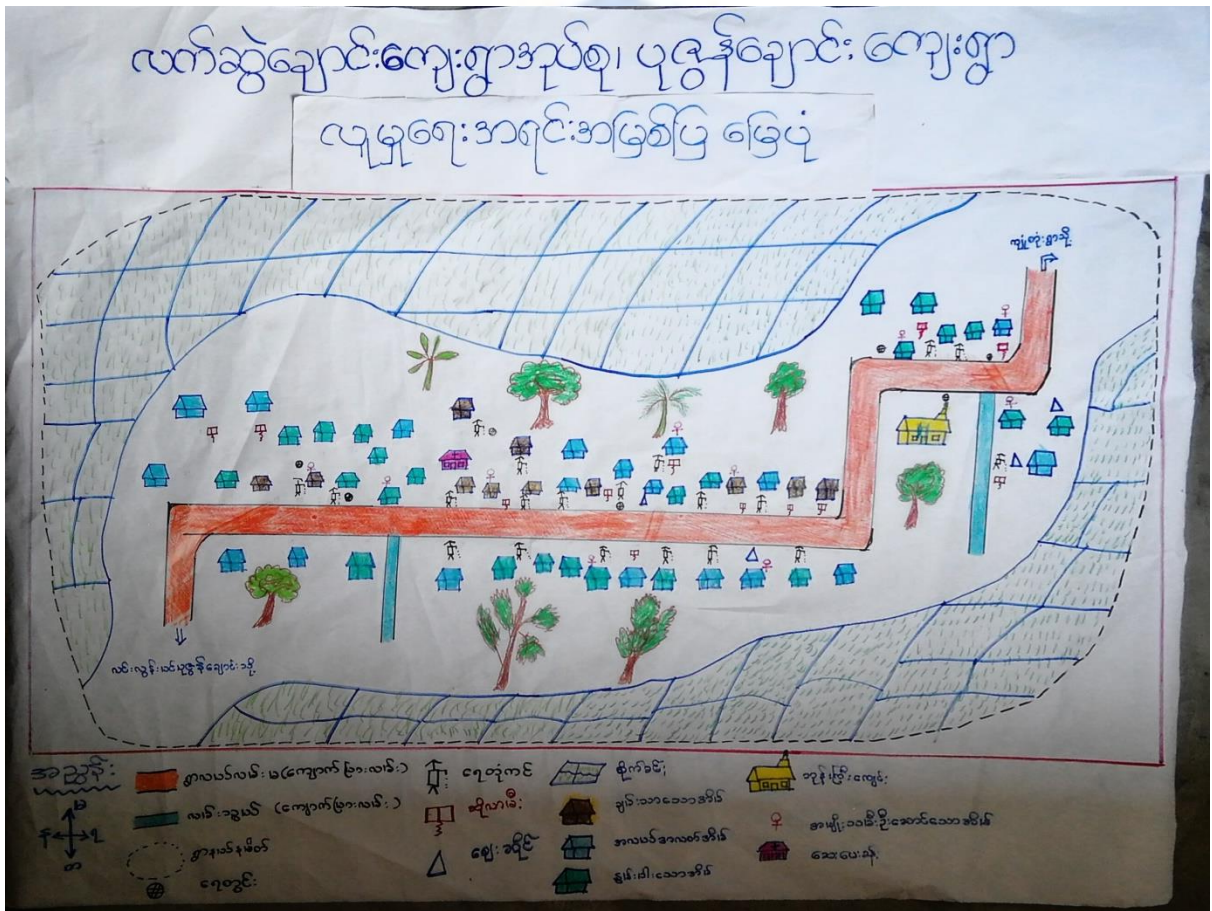 လက်ဆွဲချောင်းကျေးရွာအုပ်စု၊ ပုဇွန်ချောင်းကျေးရွာ
လူမှုရေးအရင်းအမြစ်ပြ မြေပုံ
ကျုံတုံးရွာသို့
အညွှန်း
ရွာလယ်လမ်းမ(ကျောက်ခြားလမ်း)
လမ်းသွယ် (ကျောက်ခြားလမ်း)
ရွာနယ်နမိတ်
ရေတွင်း
မ
န
ရ
တ
ရေတုံကင်
ဆိုလာမီး
ဈေးဆိုင်
စိုက်ခင်း
ချမ်းသာသောအိမ်
အလယ်အလတ်အိမ်
နွမ်းပါးသောအိမ်
ဘုန်းကြီးကျောင်း
အမျိုးသမီးဦးဆောင်သောအိမ်
ဆေးပေးခန်း